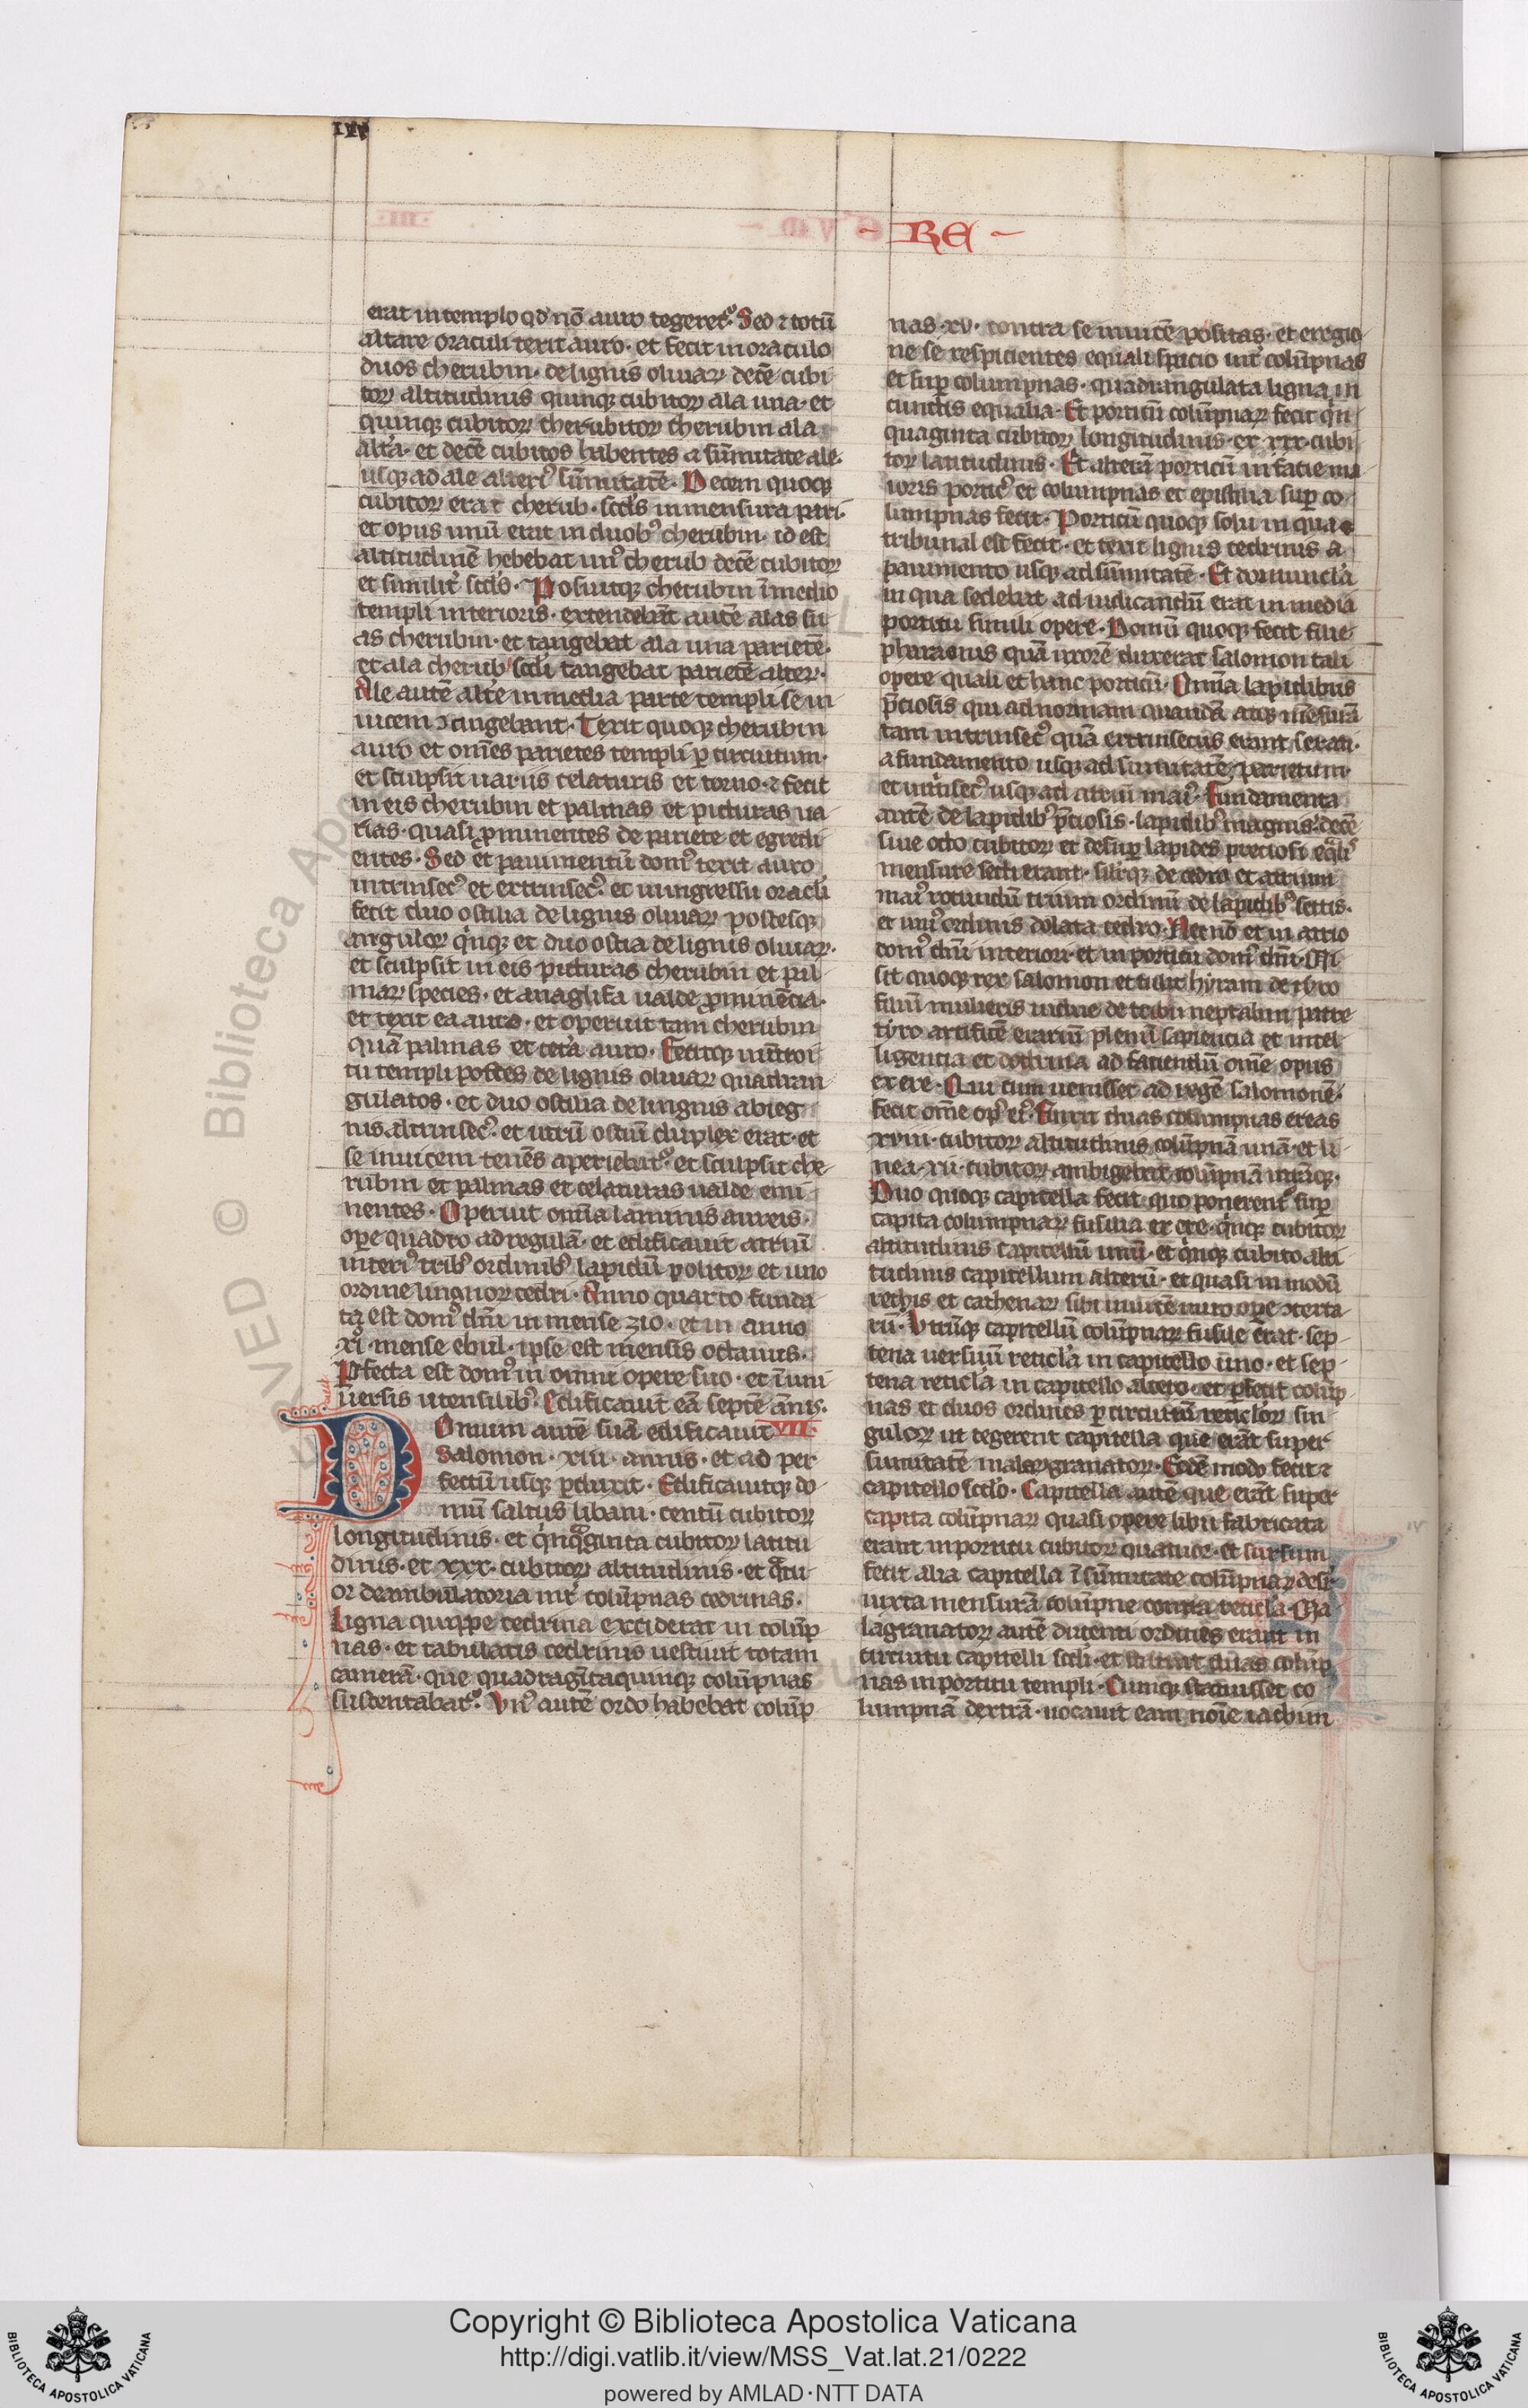 RE
erat in templo qd nō auro tegeret᷒. Sed ⁊ totū
altare oraculi texit auro· et fecit in oraculo
duos cherubin· de lignis oliuaꝝ decē cubi
toꝝ altitudinis quinqꝫ cubitoꝝ ala una· et
quinqꝫ cubitoꝝ cherubitoꝝ cherubin ala
altᷓa· et decē cubitos habentes a sūmitate ale·
usqꝫ ad ale alteri᷒ sūmitatē· Decem quoqꝫ
cubitoꝝ erat cherub· scd᷒s in mensura pari·
et opus unū erat in duob᷒ cherubin· id est
altitudinē hebebat un᷒ cherub decē cubitoꝝ
et similit᷒ scd᷒s· Posuitqꝫ cherubin ī medio
templi interioris· extendebāt autē alas su
as cherubin· et tangebat ala una parietē·
et ala cherub scd᷒i tangebat parietē alteꝝ·
Ale autē altᷓe in media parte templi se in
uicem ↄtingebant· Texit quoqꝫ cherubin
auro et om̄es parietes templi ꝑ circuitum·
et sculpsit uariis celaturis et torno· ⁊ fecit
in eis cherubin et palmas et picturas ua
rias· quasi ꝓminentes de pariete et egredi
entes· Sed et pauimentū dom᷒ texit auro
intrinsec᷒ et extrinsec᷒· et in ingressu oracl᷒i
fecit duo ostilia de lignis oliuaꝝ postesqꝫ
anguloꝝ qͥnqꝫ et duo ostia de lignis oliuaꝝ·
et sculpsit in eis picturas cherubin et pal
maꝝ species· et anaglifa ualde ꝓminēcia·
et texit ea auro· et operuit tam cherubin
quā palmas et cetᷓa auro· Fecitqꝫ in ītroi
tu templi postes de lignis oliuaꝝ quadran
gulatos· et duo ostilia de lingnis abieg
nis altrinsec᷒· et utrū ostiū duplex erat· et
se inuicem tenēs aperiebat᷒· et sculpsit che
rubin et palmas et celaturas ualde emi
nentes· Operuit om̄ia laminis aureis·
oꝑe quadro ad regulā· et edificauit atriū
interi᷒ trib᷒ ordinib᷒ lapidū politoꝝ et uno
ordine lingnoꝝ cedri· Anno quarto funda
ta est dom᷒ dn̄i in mense zio· et in anno
xi᷒· mense ebul· ipse est mensis octauus·
Ꝑfecta est dom᷒ in omni opere suo· et ī uni
uersis utensilib᷒· Edificauit eā septē ānis·
VII·
Domum autē suā edificauit
Salomon· xiii· annis· et ad per
fectū usqꝫ ꝑduxit· Edificauitqꝫ do
mū saltus libani· centū cubitoꝝ
longitudinis· et qͥnqᷓginta cubitoꝝ latitu
dinis· et xxx· cubitoꝝ altitudinis· et qᷓtu
or deambulatoria int᷒ colūpnas cedrinas·
Ligna quippe cedrina exciderat in colūp
nas· et tabulatis cedrinis uestiuit totam
camerā· que quadragītaquinqꝫ colūpnas
sustentabat᷒· Vn᷒ autē ordo habebat colūp
nas· xv· contra se inuicē positas· et eregio
ne se respicientes equali spacio int᷒ colūpnas
et suꝑ columpnas· quadrangulata ligna in
cunctis equalia· Et porticū colūpnaꝝ fecit qͥn
quaginta cubitoꝝ longitudinis· et xxx· cubi
toꝝ latitudinis· Et alterā porticū in facie ma
ioris portic᷒ et columpnas et epistilia suꝑ co
lumpnas fecit· Porticū quoqꝫ solii in qua
tribunal est fecit· et texit lignis cedrinis a
pauimento usqꝫ ad sūmitatē· Et domuncl᷒a
in qua sedebat ad iudicandū erat in media
porticu simili opere· Domū quoqꝫ fecit filie
pharaonis quā uxorē duxerat salomon tali
opere quali et hanc porticū· Omīa lapidibus
p̄ciosis qui ad normam quandā atqꝫ mēsurā
tam intrinsec᷒ quā extrinsecus erant serati·
a fundamento usqꝫ ad sūmitatē parietum
et intͥsec᷒ usqꝫ ad atriū mai᷒· Fundamenta
autē de lapidib᷒ p̄ciosis· lapidib᷒ magnis· decē
siue octo cubitoꝝ et desuꝑ lapides preciosi eqᷓli᷒
mensure secti erant· silr̄qꝫ de cedro et atrium
mai᷒ rotundū trium ordinū de lapidib᷒ sectis·
et uni᷒ ordinis dolata cedro· Necnō et in atrio
dom᷒ dn̄i interiori· et in porticu dom᷒ dn̄i· Mi
sit quoqꝫ rex salomon et tulit hyram de tyro
filiū mulieris uidue de tribu neptalim patre
tyro artificē erariū plenū sapiencia et intel
ligencia et doctrina ad faciendū om̄e opus
ex ere· Qui cum uenisset ad regē salomonē·
fecit om̄e op᷒ ei᷒· Finxit duas columpnas ereas
xviii· cubitoꝝ altitudinis colūpnā unā· et li
nea xii· cubitoꝝ ambigebat colūpnā utrāqꝫ·
Duo quoqꝫ capitella fecit quo ponerent᷒ suꝑ
capita columpnaꝝ fusilia ex ere· qͥnqꝫ cubitoꝝ
altitudinis capitellū unū· et qͥnqꝫ cubito alti
tudinis capitellum alterū· et quasi in modū
rethis et cathenaꝝ sibi inuicē miro oꝑe ↄtexta
rū· Vtrūqꝫ capitellū colūpnaꝝ fusile erat· sep
tena uersuū reticl᷒a in capitello uno· et sep
tena reticl᷒a in capitello altero· et ꝑfecit colūp
nas et duos ordines ꝑ circuitū reticl᷒oꝝ sin
guloꝝ ut tegerent capitella que erāt super
sūmitatē malogranatoꝝ· Eodē modo fecit ⁊
capitello scd᷒o· Capitella autē que erāt super
capita colūpnaꝝ quasi opere lilii fabricata
erant in porticu cubitoꝝ quatuor· et sursum
fecit alia capitella ī sūmitate colūpnaꝝ desr᷒
iuxta mensurā colūpne contra reticl᷒a· Ma
lagranatoꝝ autē ducenti ordines erant in
circuitu capitelli scd᷒i· et statuit duas colūp
nas in porticu templi· Cumqꝫ statuisset co
lumpnā dextrā· uocauit eam nōīe iachim
Copyright © Biblioteca Apostolica Vaticana
http://digi.vatlib.it/view/MSS_Vat.lat.21/0222
powered by AMLAD·NTT DATA
BIBLIOTECA APOSTOLICA VATICANA
BIBLIOTECA APOSTOLICA VATICANA